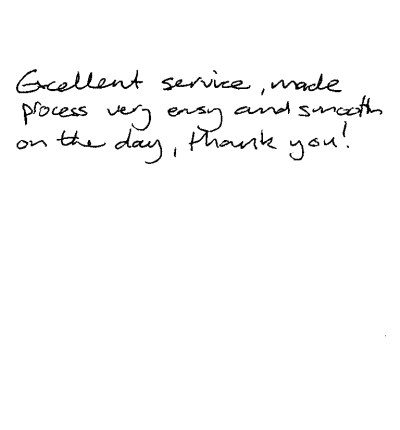 Excellent service, made
process very easy and smooth
on the day, thank you!